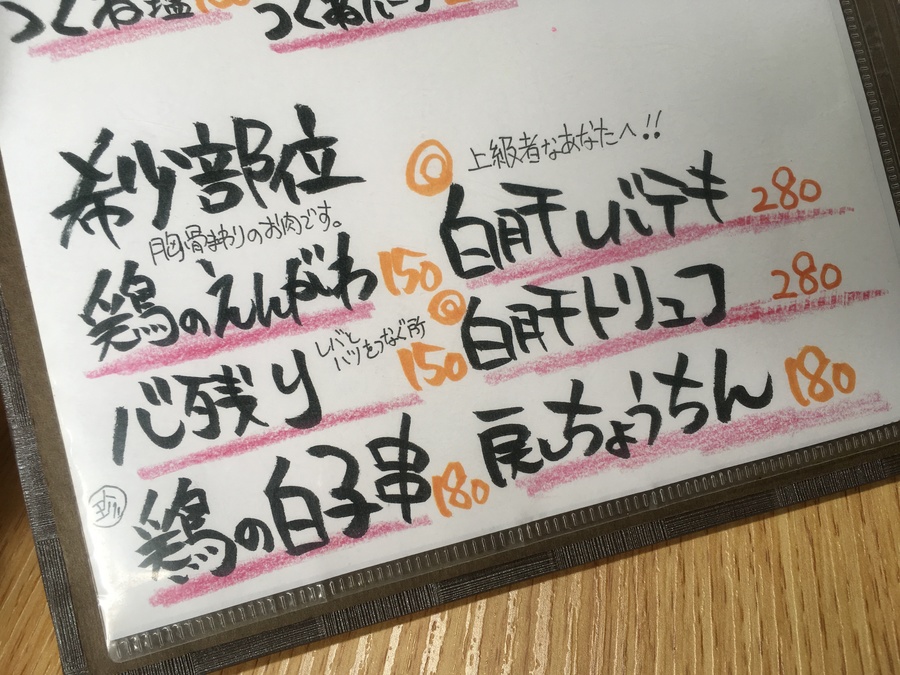 つくね塩
つくねハーブ
希少部位
胸骨まわりのお肉です。
鶏のえんがわ 150
心残り レバとハツをつなぐ所 150
鶏の白子串 180
◎ 上級者なあなたへ!!
白肝レバテキ 280
◎ 白肝トリュフ 280
戻しちょうちん 180